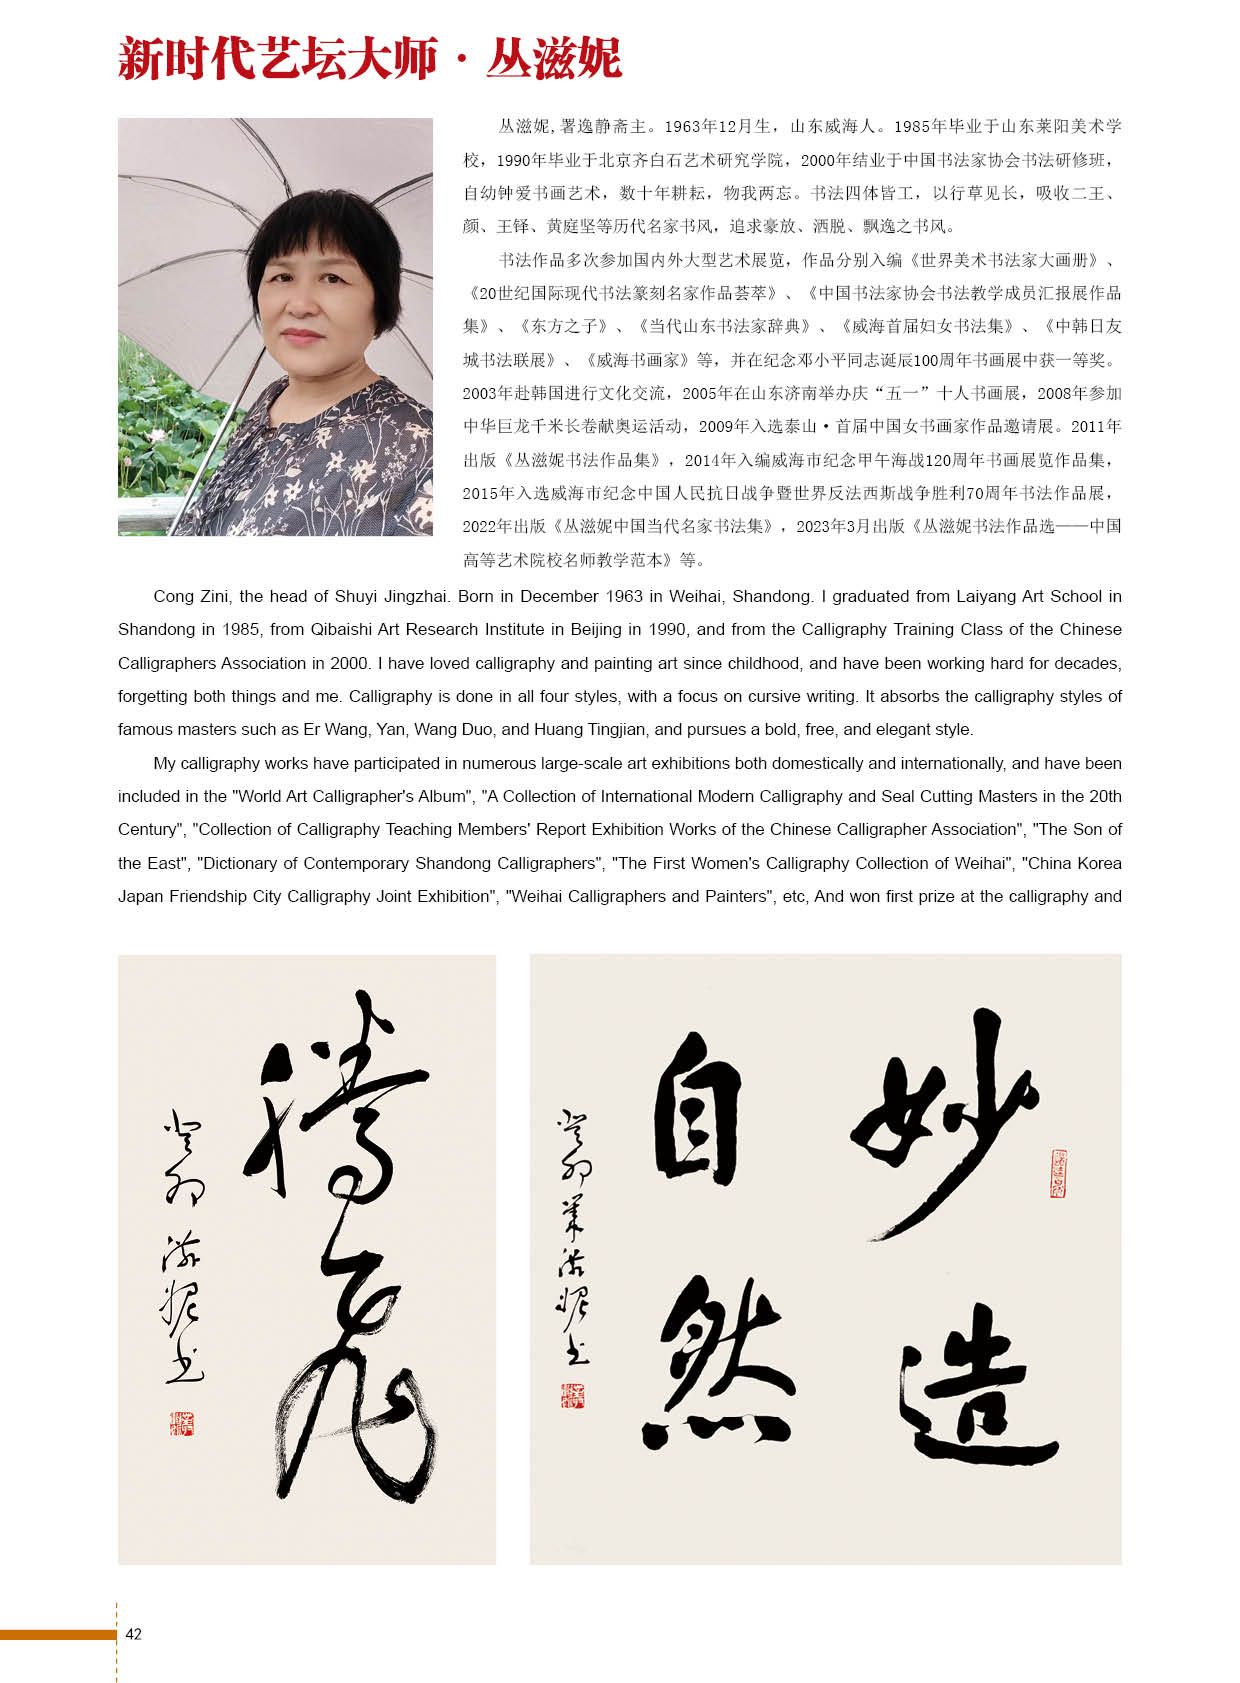 新时代艺坛大师·丛滋妮
丛滋妮,署逸静斋主。1963年12月生，山东威海人。1985年毕业于山东莱阳美术学
校，1990年毕业于北京齐白石艺术研究学院，2000年结业于中国书法家协会书法研修班，
自幼钟爱书画艺术，数十年耕耘，物我两忘。书法四体皆工，以行草见长，吸收二王、
颜、王铎、黄庭坚等历代名家书风，追求豪放、洒脱、飘逸之书风。
书法作品多次参加国内外大型艺术展览，作品分别入编《世界美术书法家大画册》、
《20世纪国际现代书法篆刻名家作品荟萃》、《中国书法家协会书法教学成员汇报展作品
集》、《东方之子》、《当代山东书法家辞典》、《威海首届妇女书法集》、《中韩日友
城书法联展》、《威海书画家》等，并在纪念邓小平同志诞辰100周年书画展中获一等奖。
2003年赴韩国进行文化交流，2005年在山东济南举办庆“五一”十人书画展，2008年参加
中华巨龙千米长卷献奥运活动，2009年入选泰山·首届中国女书画家作品邀请展。2011年
出版《丛滋妮书法作品集》，2014年入编威海市纪念甲午海战120周年书画展览作品集，
2015年入选威海市纪念中国人民抗日战争暨世界反法西斯战争胜利70周年书法作品展，
2022年出版《丛滋妮中国当代名家书法集》，2023年3月出版《丛滋妮书法作品选——中国
高等艺术院校名师教学范本》等。
Cong Zini, the head of Shuyi Jingzhai. Born in December 1963 in Weihai, Shandong. I graduated from Laiyang Art School in
Shandong in 1985, from Qibaishi Art Research Institute in Beijing in 1990, and from the Calligraphy Training Class of the Chinese
Calligraphers Association in 2000. I have loved calligraphy and painting art since childhood, and have been working hard for decades,
forgetting both things and me. Calligraphy is done in all four styles, with a focus on cursive writing. It absorbs the calligraphy styles of
famous masters such as Er Wang, Yan, Wang Duo, and Huang Tingjian, and pursues a bold, free, and elegant style.
My calligraphy works have participated in numerous large-scale art exhibitions both domestically and internationally, and have been
included in the "World Art Calligrapher's Album", "A Collection of International Modern Calligraphy and Seal Cutting Masters in the 20th
Century", "Collection of Calligraphy Teaching Members' Report Exhibition Works of the Chinese Calligrapher Association", "The Son of
the East", "Dictionary of Contemporary Shandong Calligraphers", "The First Women's Calligraphy Collection of Weihai", "China Korea
Japan Friendship City Calligraphy Joint Exhibition", "Weihai Calligraphers and Painters", etc, And won first prize at the calligraphy and
腾飞
癸卯滋妮书
妙造
自然
癸卯丛滋妮书
42